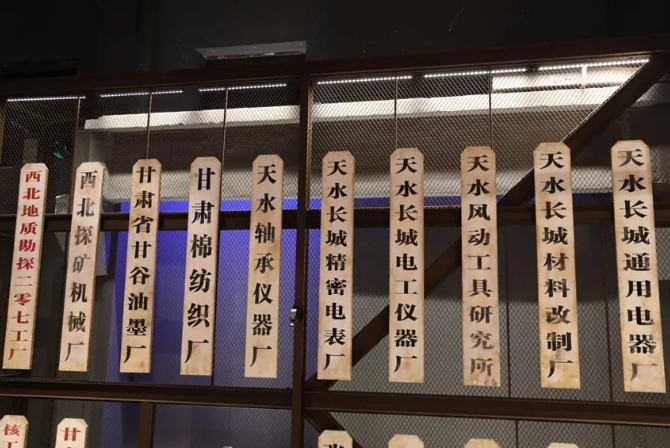 西北地质勘探二零七工厂
西北探矿机械厂
甘肃省甘谷油墨厂
甘肃棉纺织厂
天水轴承仪器厂
天水长城精密电表厂
天水长城电工仪器厂
天水风动工具研究所
天水长城材料改制厂
天水长城通用电器厂
核工
甘